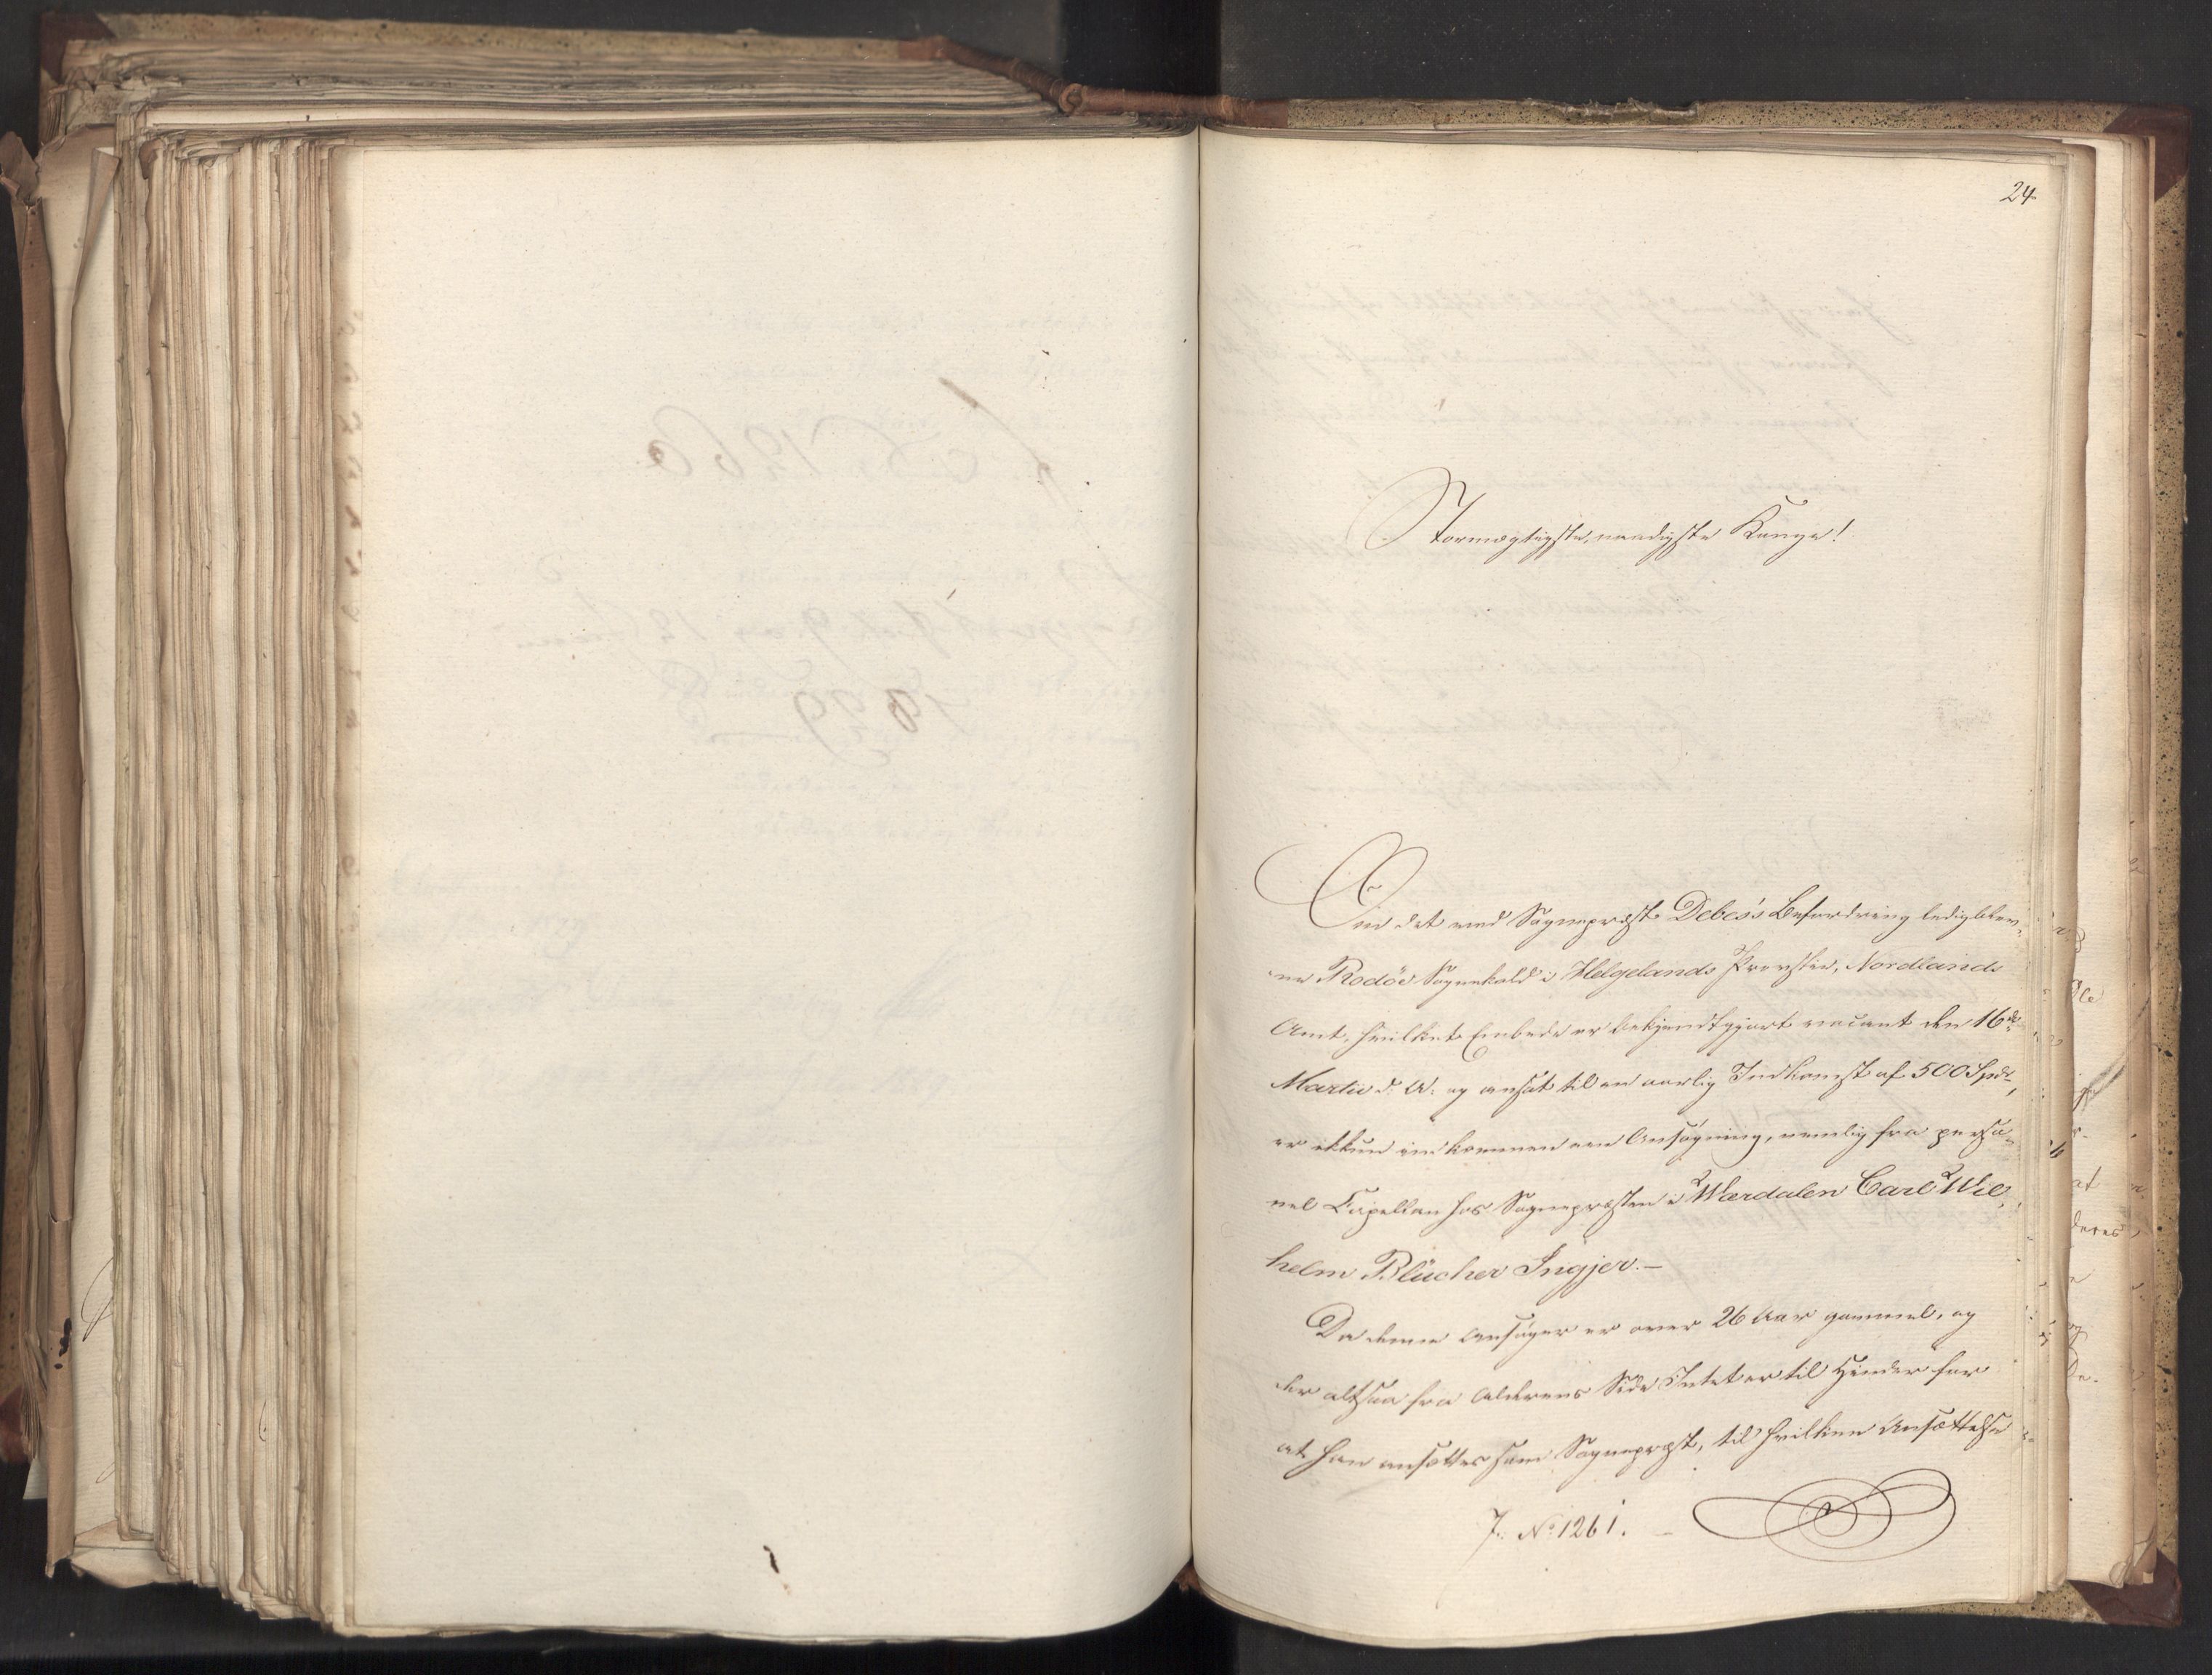 24.
Stormægtigste, naadigste Konge!
Om det ved Sognepræst Debes's Befordring ledigblev-
ne Rodöe Sognekald i Helgelands Provstie, Nordlands
Amt, hvilket Embede er bekjendtgjort vacant den 16de
Martii d. A. og ansat til en aarlig Indkomst af 500 Spdr,
er ikkun indkommen een Ansøgning, nemlig fra perso-
nel Capellan hos Sognepræsten i Værdalen Carl Wil-
helm Blücher Ingjer. –
Da denne Ansøger er over 26 Aar gammel, og
der altsaa fra Alderens Side Intet er til Hinder for
at han ansættes som Sognepræst, til hvilken Ansættelse
J. No 1261.